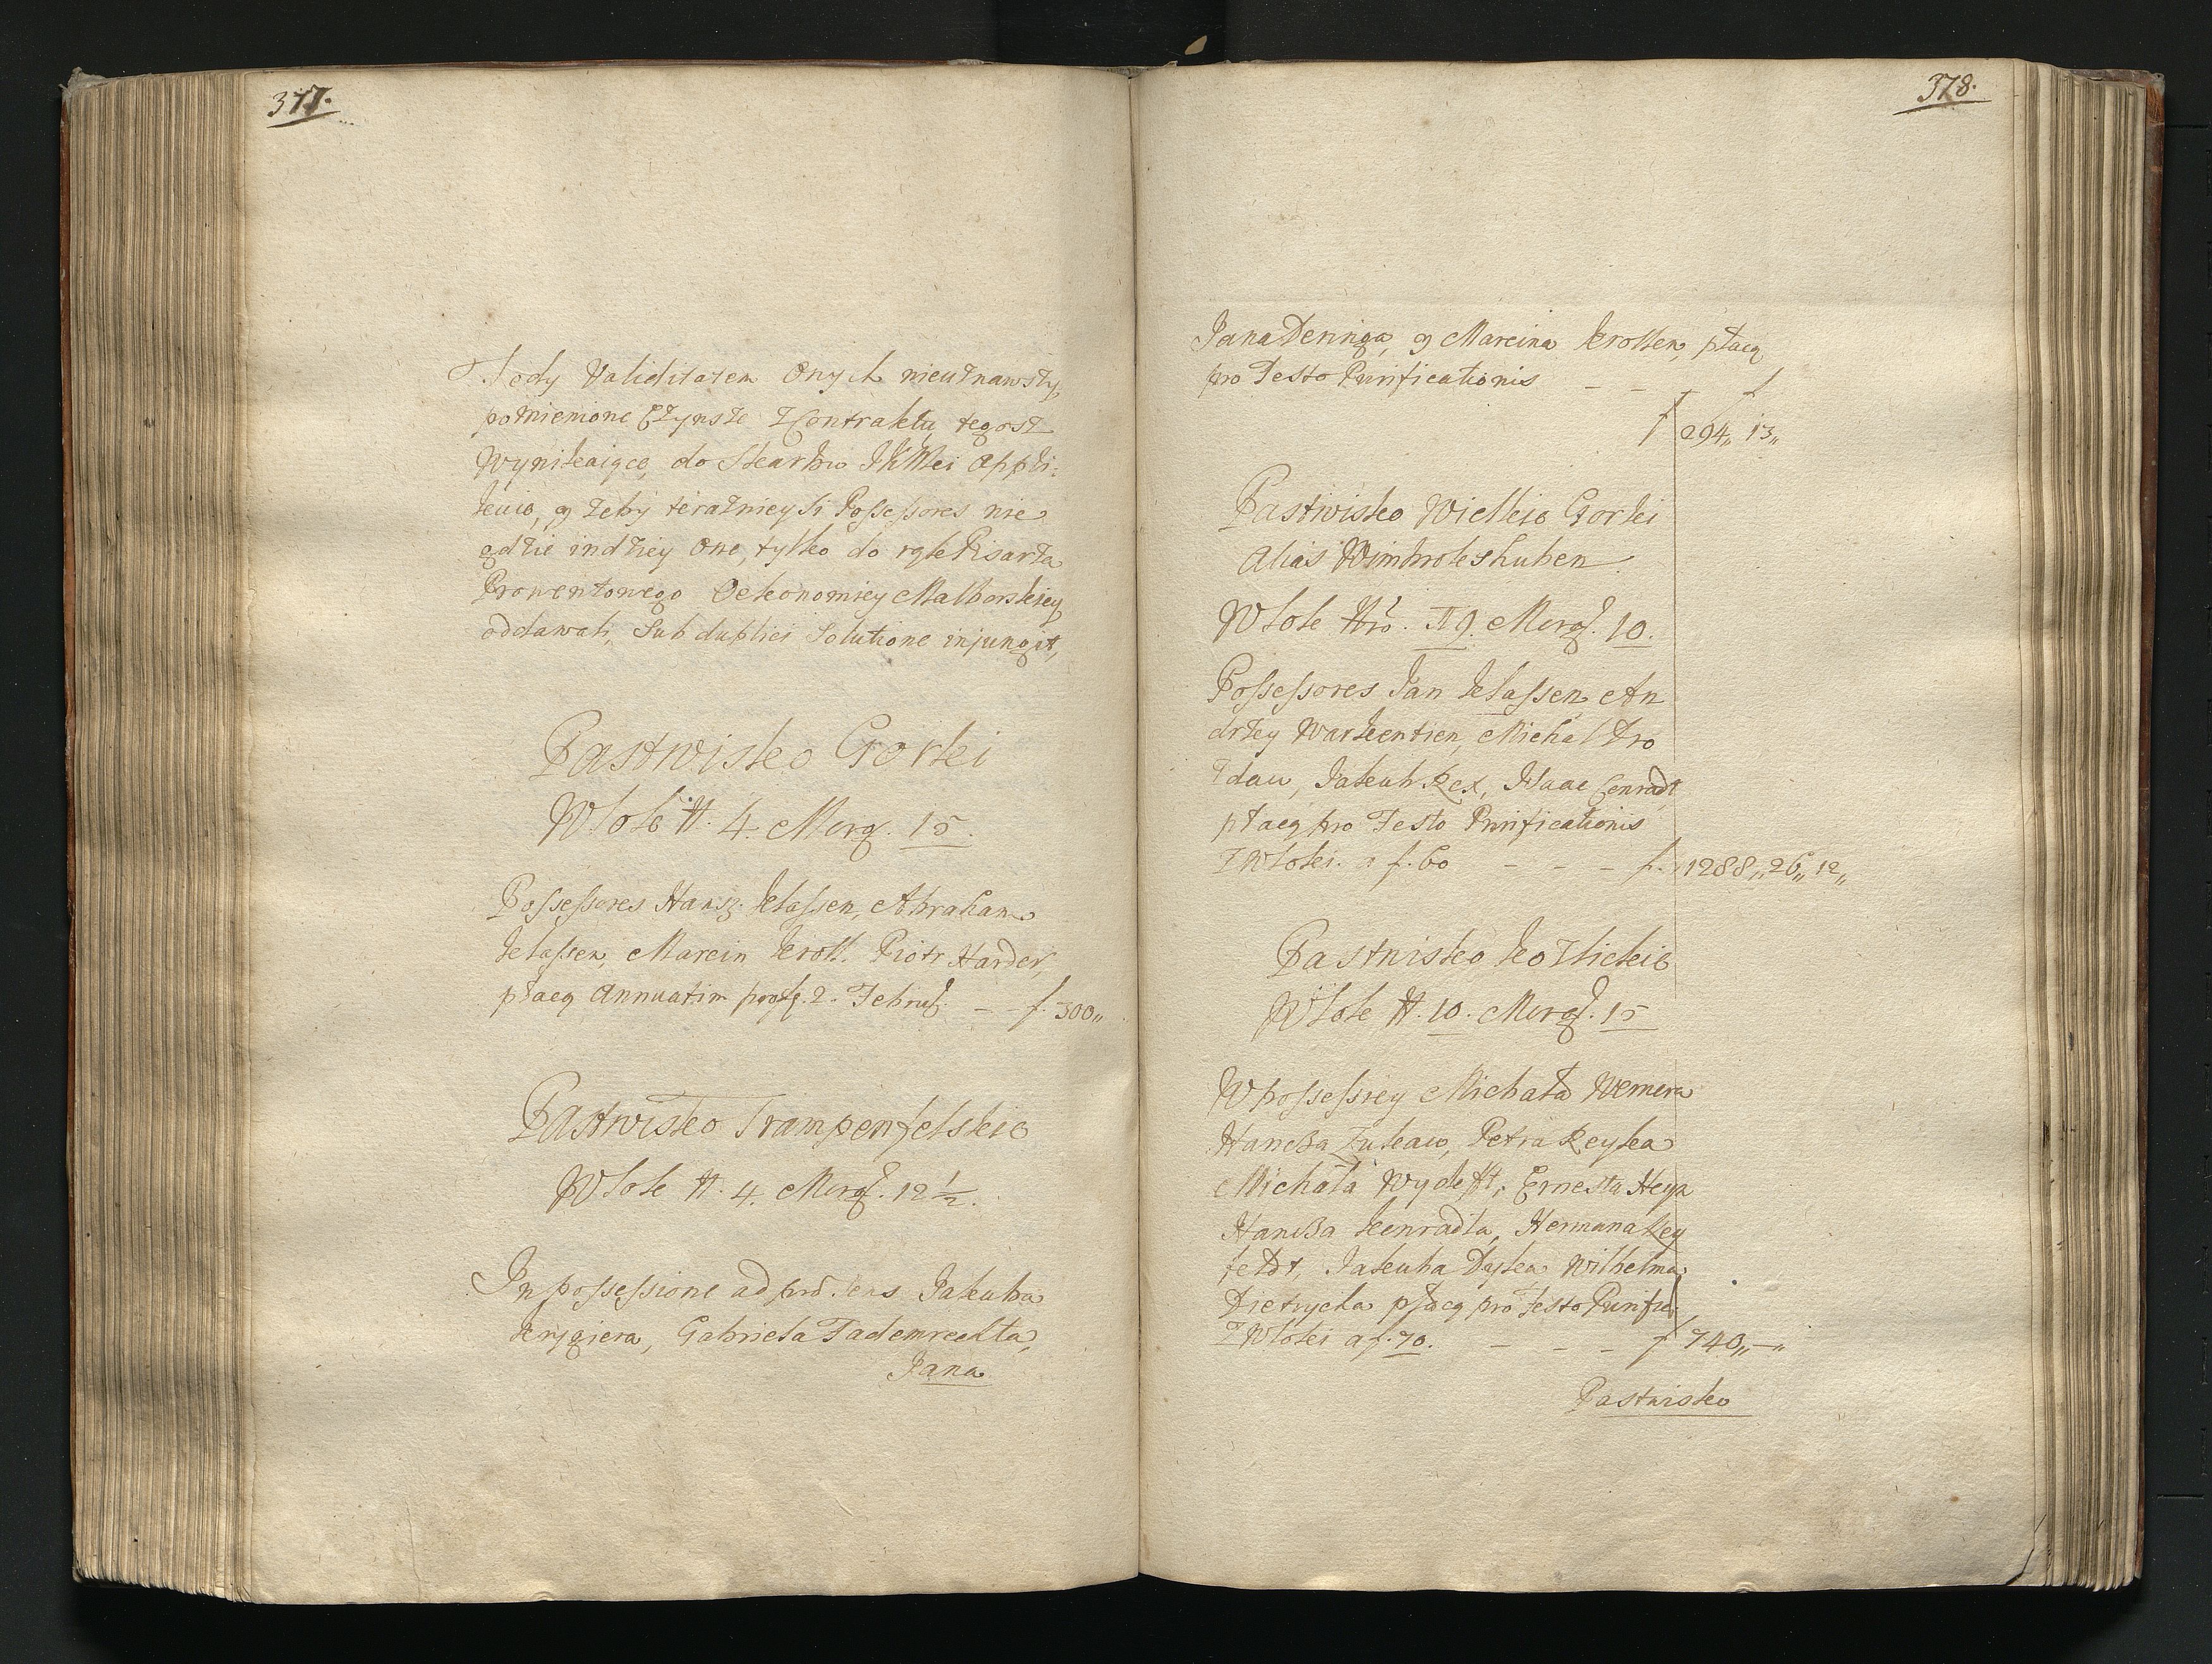 377.
Tedy Validitatem Onych nieuznawszy
pomienione Czynsze z Contraktu tegosz
Wynikaiące, do Skarbu JKMci Appli-
kuie, y żeby teraznieysi Possessores nie
gdzie indziey One, tylko do rąk Pisarza
Prowentowego Oekonomiey Malborskiey
oddawali, Sub duplici Solutione injungit,
Pastwisko Gorki
Włok N. 4. Morg. 15.
Possessores Hansz Klassen, Abraham
Klassen, Marcin Kroll. Piotr Harder,
płacą Annuatim 2. Februar. — f. 300„
Pastwisko Trampenfelskie
Włok N. 4. Morg. 12½.
In possessione ad præsens Jakuba
Krygiera, Gabriela Fademrechta,
Jana
378.
Jana Deringa, y Marcina Krollen, płacą
pro Festo Purificationis — — f
f 294„ 13„
Pastwisko Wielkie Gorki
alias Wimbrokshuben.
Włok Nro. 19. Morg. 10.
Possessores Jan Klassen An
drzey Warkentien, Michał Dro
zdau, Jakub Rex, Isaac Conradt
płacą pro Festo Purificationis
z Włoki a f. 60 — — — f. 1288„ 26„ 12„
Pastwisko Kozlickie
Włok N. 10. Morg. 15
W possessiey Michała Wernera
Hansza Zukau, Petra Reyka
Michała Ernesta Heya
Hansza Kenradta, Hermana Rey
feldt, Jakuba Dyka Wilhelma
Dietrycha płacą pro festo Purific:
z Włoki a f. 70. — — — f 740„—„
Pastwisko